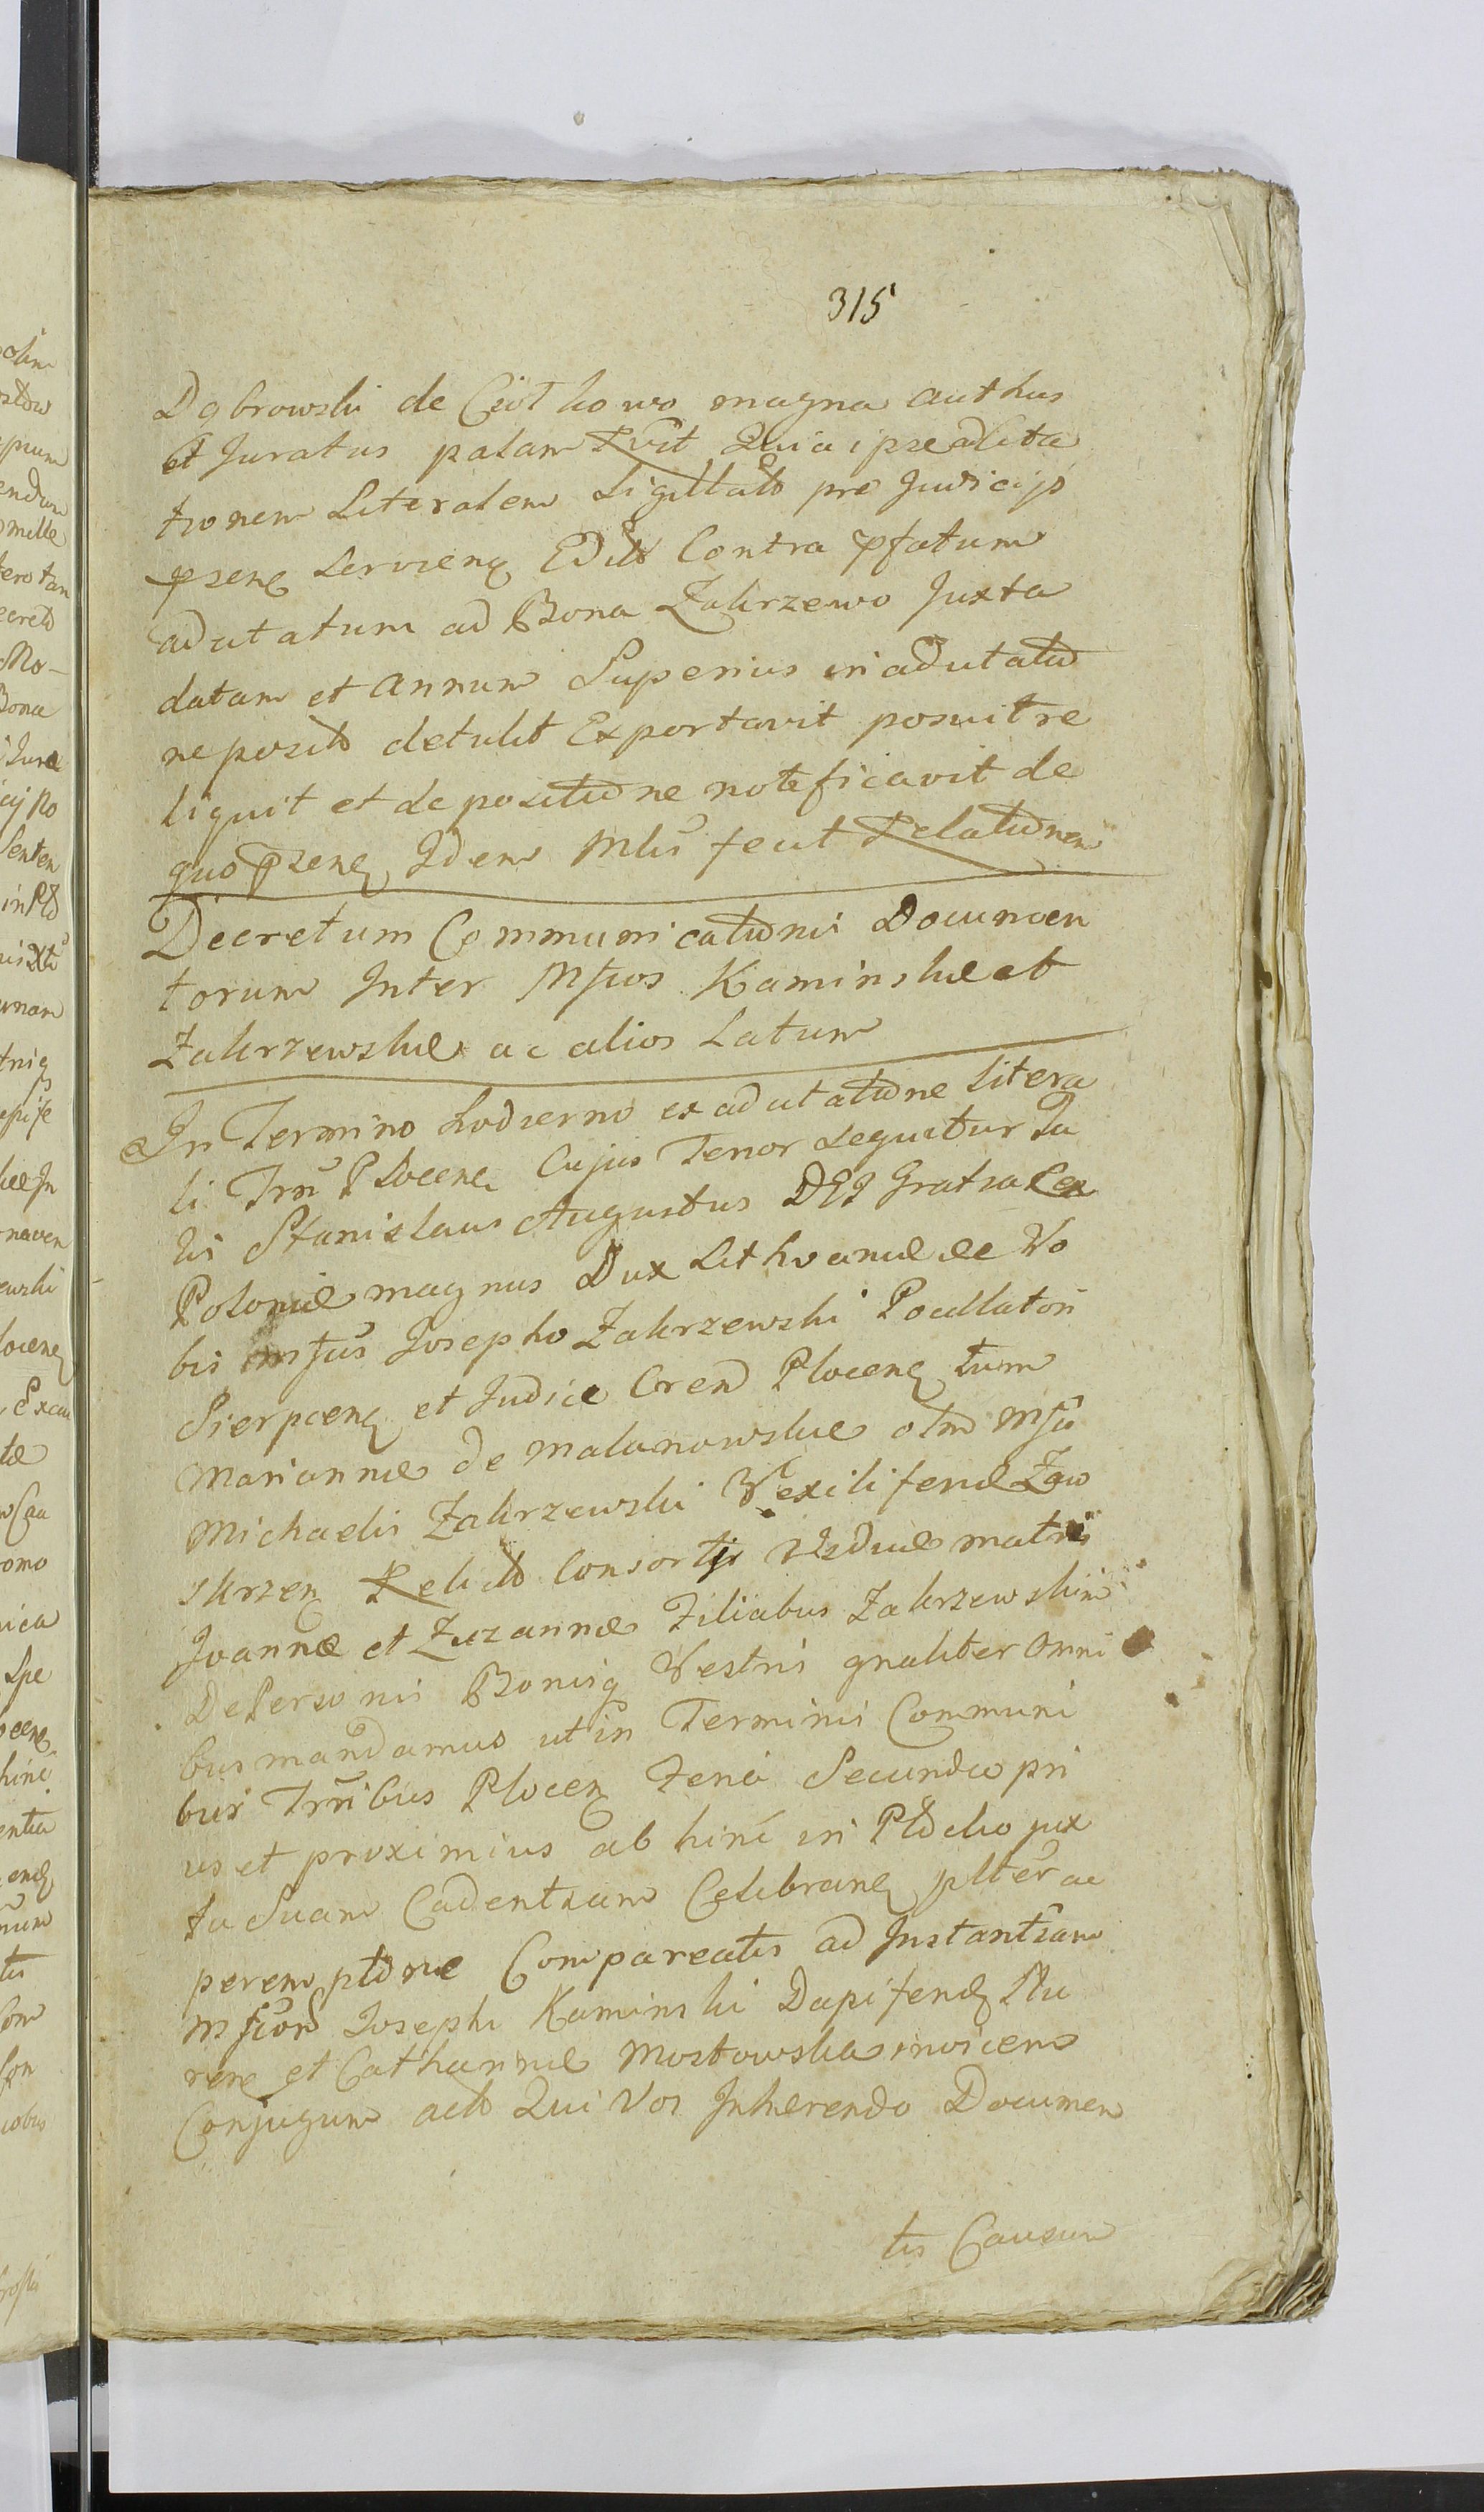 315
Dąbrowski de Ciołkowo magna authus
et Juratus palam Rvit Quia ipse adcita
tionem Literalem Sigillatō pro Judicijs
pseng Servieng Editō Contra pfatum
adcitatum ad Bona Zakrzewo Juxta
datam et annum Superius in adcitatio
ne positō detulit Exportavit posuit re
liquit et de positione notificavit de
quo pseng Idem Mlis fecit Relationem
Decretum Communicationis Documen
torum Inter Mfcos Kaminskie et
Zakrzewskie ac alios Latum
In Termino hodierno ex adcitatione litera
li Trri Ploceng Cujus Tenor Sequitur Ta
lis Stanislaus Augustus DEI Gratia Rex
Poloniæ magnus Dux Lithvaniæ &c Vo
bis mfcis Josepho Zakrzewski Pocillatori
Sierpceng et Judici Cren Ploceng tum
Mariannæ de Malanowskie olim mfci
Michaelis Zakrzewski Vexiliferi Zaw
skrzeng Relictō Consortis Viduæ matri
Joannæ et Zuzannæ Filiabus Zakrzewskim
De Personis Bonisq Vestris gnaliter Omni
bus mandamus ut in Terminis Communi
bus Trribus Ploceng Feria Secunda pri
us et proximius ab hinc in Ptdcho jux
ta Suam Cadentiam Celebrang plter ac
peremptorie Compareatis ad Instantiam
mfcorum Josephi Kaminski Dapiferi
et Catharinæ Mostowska invicem
Conjugum actō Qui Vos Inhærendo Documen
tis Causum